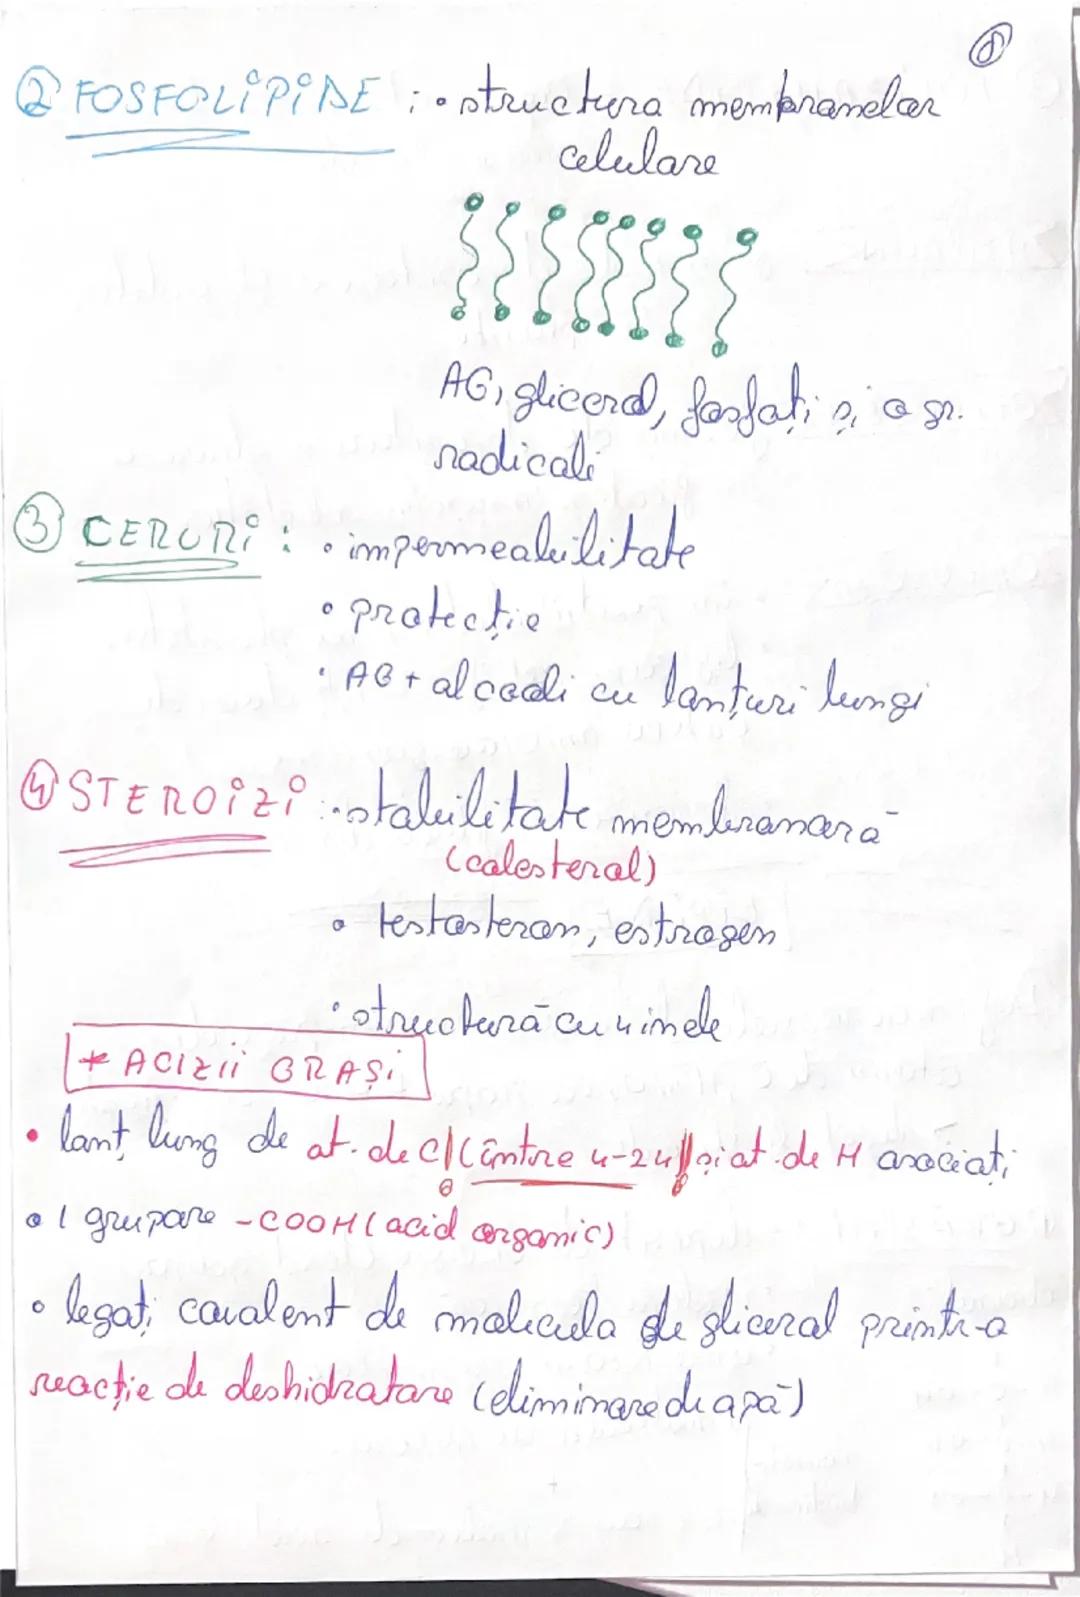 ② FOSFOLIPIDE : • structura membranelor
celulare
AG, glicerol, fosfați și o gr.
radicali
③ CERURI : • impermeabilitate
• protecție
• AG + alcooli cu lanțuri lungi
④ STEROIZI : • stabilitate membranară
(colesterol)
• testosteron, estrogen
• structură cu 4 inele
* ACIZII GRAȘI
• lanț lung de at. de C (între 4-24) și at. de H asociați
• 1 grupare -COOH (acid organic)
• legați covalent de molecula de glicerol printr-o
reacție de deshidratare (eliminare de apă)